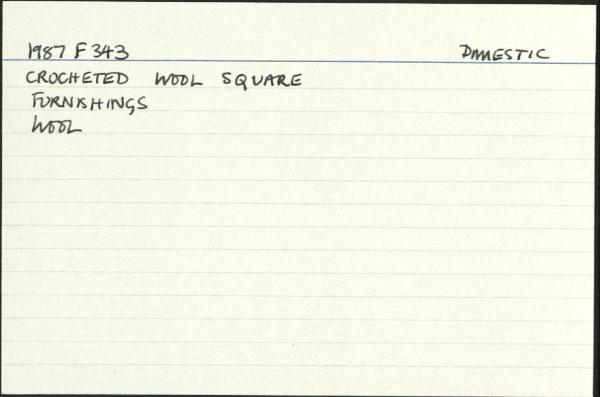 1987 F 343 DOMESTIC
CROCHETED WOOL SQUARE
FURNISHINGS
WOOL